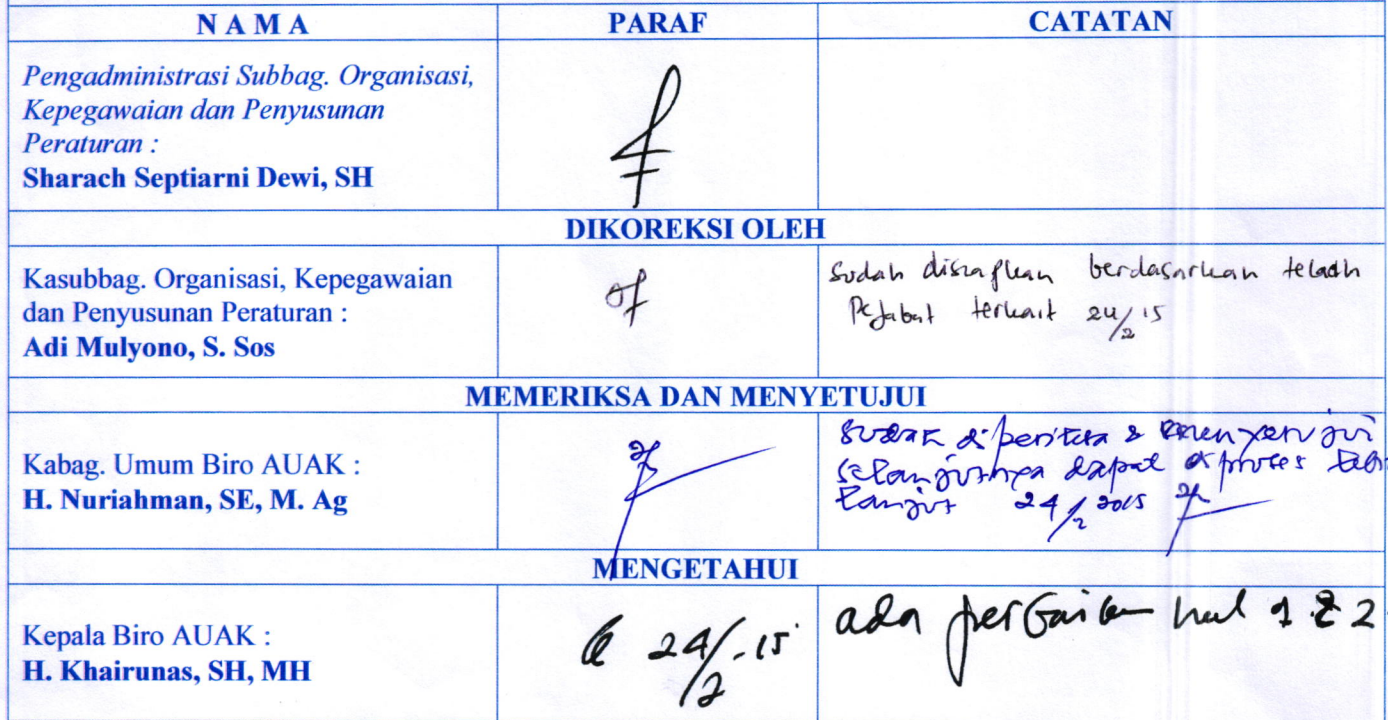 N A M A PARAF CATATAN
Pengadministrasi Subbag. Organisasi,
Kepegawaian dan Penyusunan
Peraturan :
Sharach Septiarni Dewi, SH
DIKOREKSI OLEH
Kasubbag. Organisasi, Kepegawaian
dan Penyusunan Peraturan :
Adi Mulyono, S. Sos
sudah berdasarkan
Pejabat terkait 24/2 15
MEMERIKSA DAN MENYETUJUI
Kabag. Umum Biro AUAK :
H. Nuriahman, SE, M. Ag
sudah diperiksa &
selanjutnya dapat diproses
lanjut 24/2 2015
MENGETAHUI
Kepala Biro AUAK :
H. Khairunas, SH, MH
24/2-15
ada perbaikan hal 1 & 2